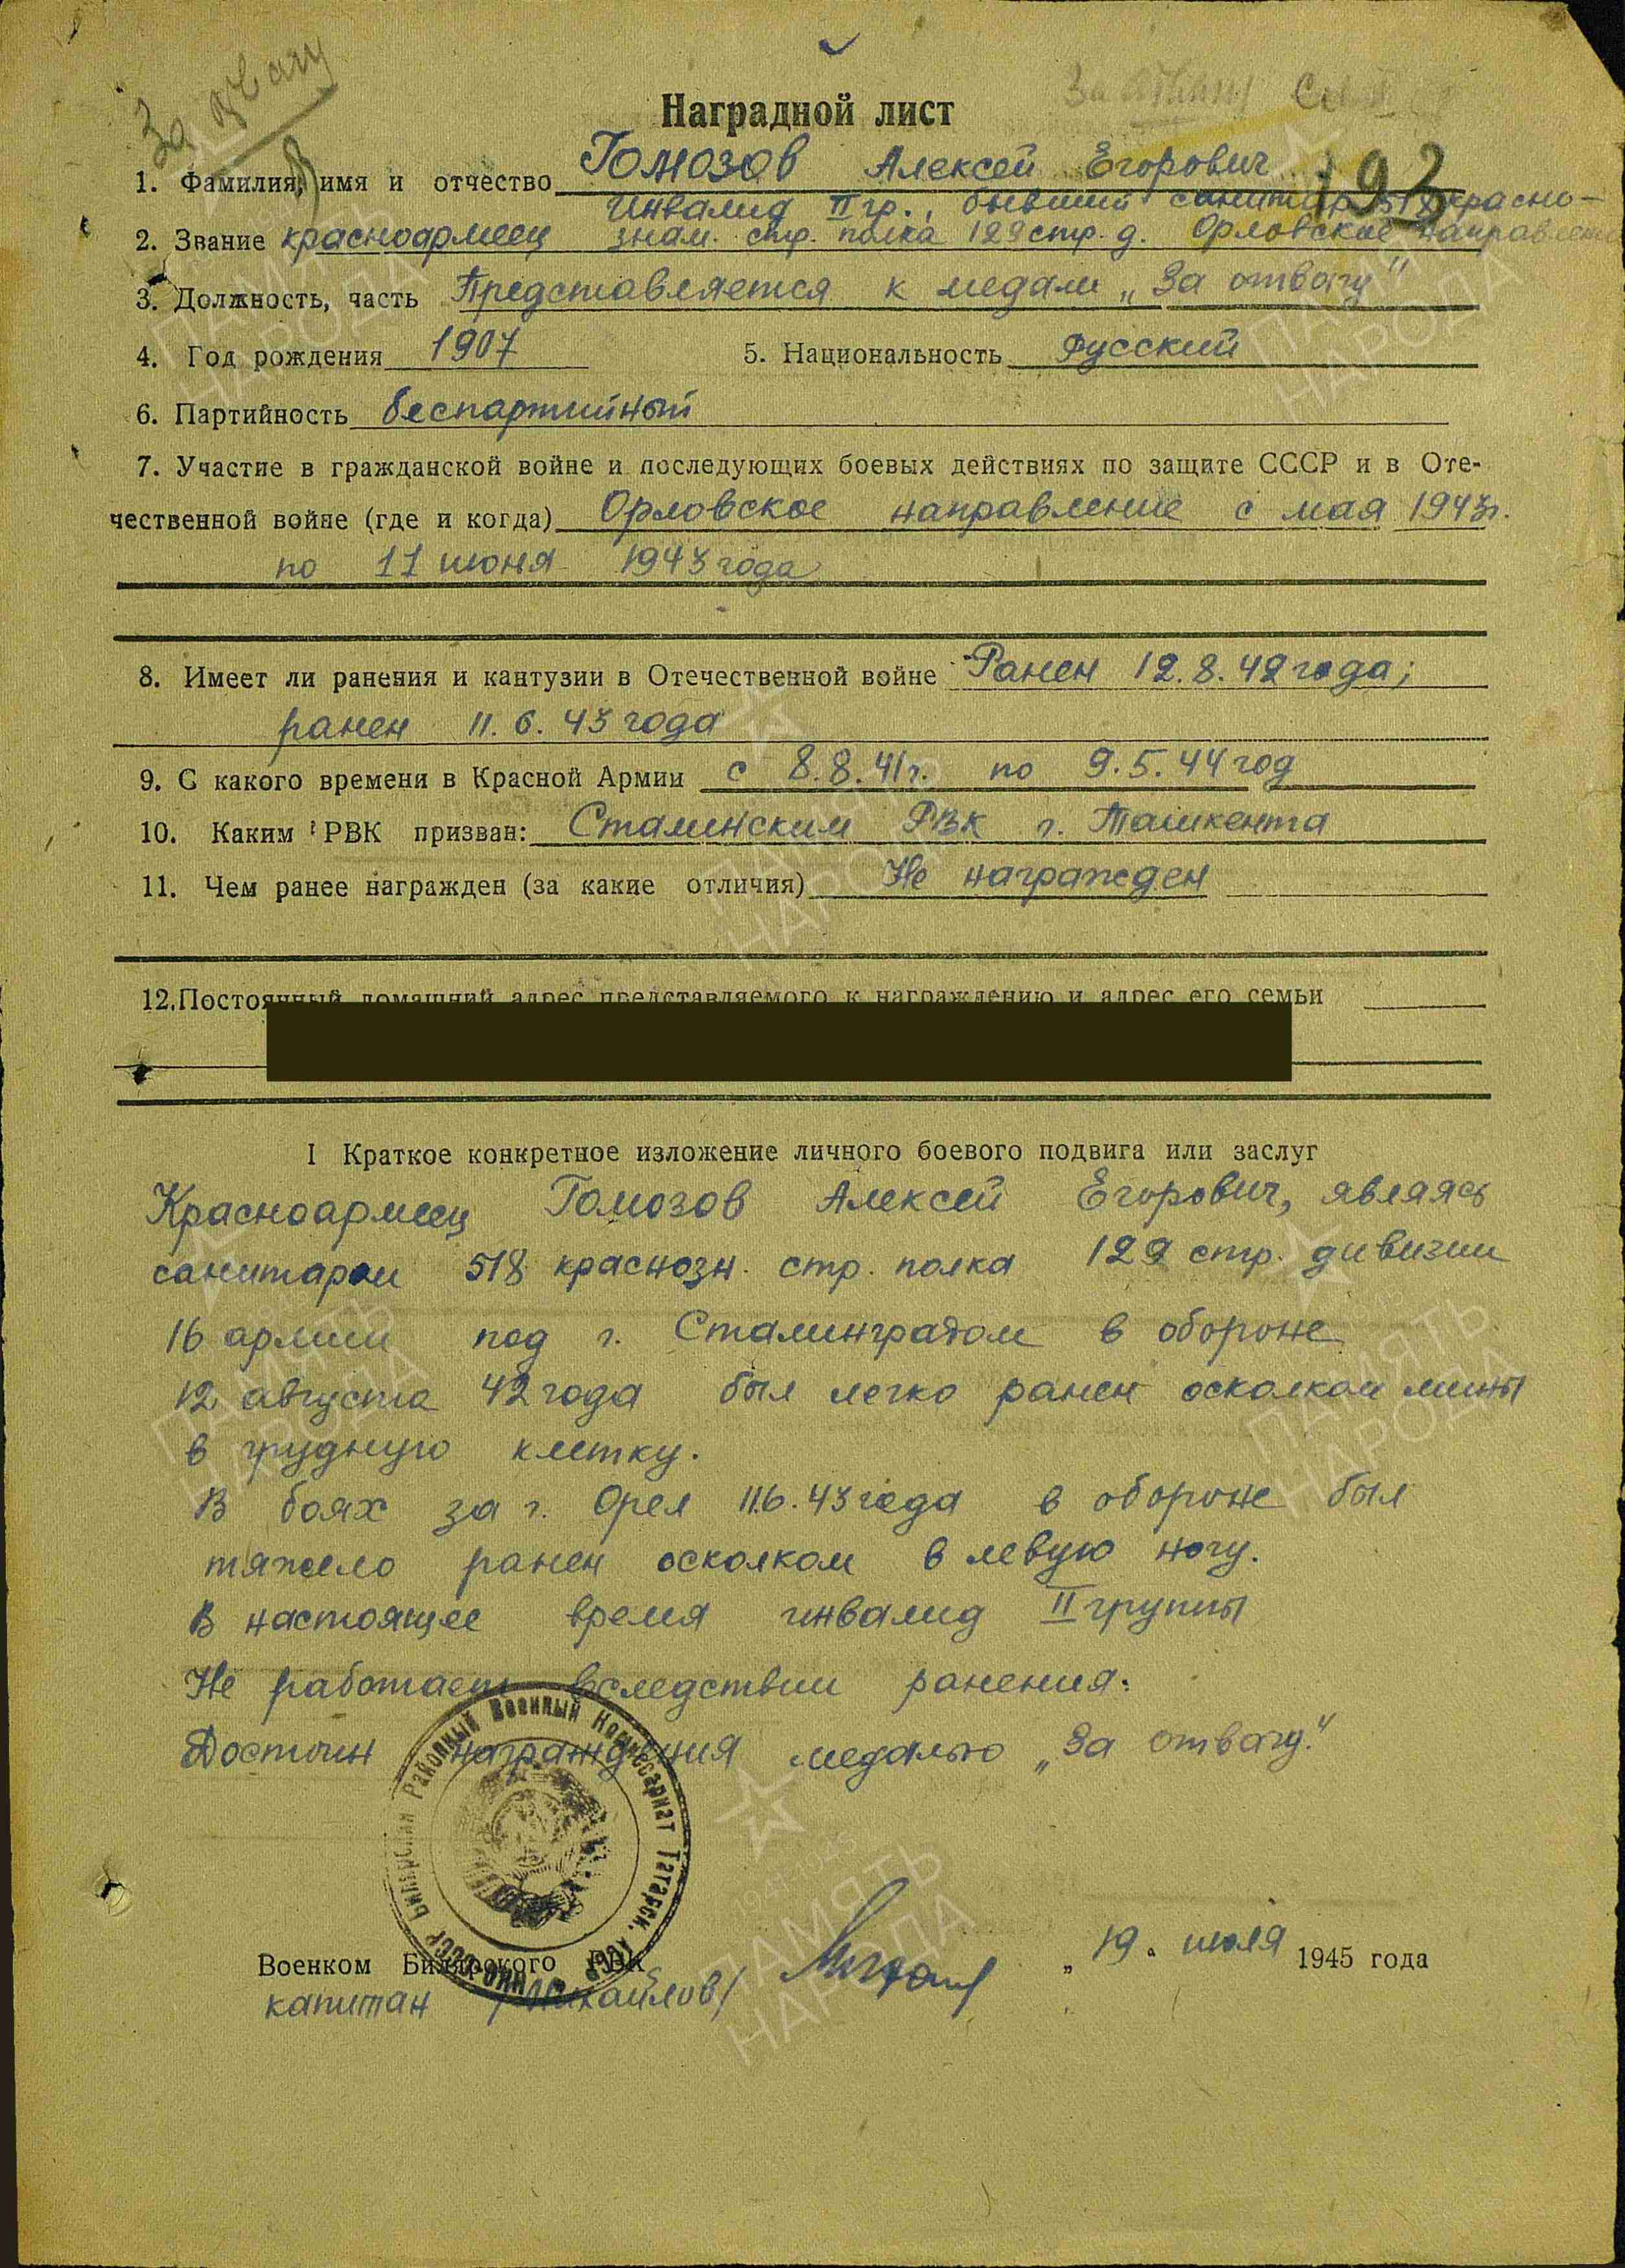 За отвагу
Наградной лист
193
1. Фамилия, имя и отчество Гомозов Алексей Егорович
Инвалид II гр., бывший санитар 518 красно-
2. Звание красноармеец знам. стр. полка 129 стр. д. Орловское направлен
3. Должность, часть Представляется к медали „За отвагу"
4. Год рождения 1907 5. Национальность русский
6. Партийность беспартийный
7. Участие в гражданской войне и последующих боевых действиях по защите СССР и в Оте-
чественной войне (где и когда) Орловское направление с мая 1943г.
по 11 июня 1943 года
8. Имеет ли ранения и кантузии в Отечественной войне Ранен 12.8.42 года;
ранен 11.6.43 года
9. С какого времени в Красной Армии с 8.8.41г. по 9.5.44 год
10. Каким РВК призван: Сталинским РВК г. Ташкента
11. Чем ранее награжден (за какие отличия) Не награжден
12. Постоянный домашний адрес представляемого к награждению и адрес его семьи
I Краткое конкретное изложение личного боевого подвига или заслуг
Красноармеец Гомозов Алексей Егорович, являясь
санитаром 518 краснозн. стр. полка 129 стр. дивизии
16 армии под г. Сталинградом в обороне
12 августа 42 года был легко ранен осколком мины
в грудную клетку.
В боях за г. Орел 11.6.43 года в обороне был
тяжело ранен осколком в левую ногу.
В настоящее время инвалид II группы
Не работает вследствии ранения.
Достоин награждения медалью „За отвагу."
Билярский Районный Военный Комиссариат Татарск. АССР
Военком Билярского РВК „19" июля 1945 года
капитан /Михайлов/
ПАМЯТЬ НАРОДА